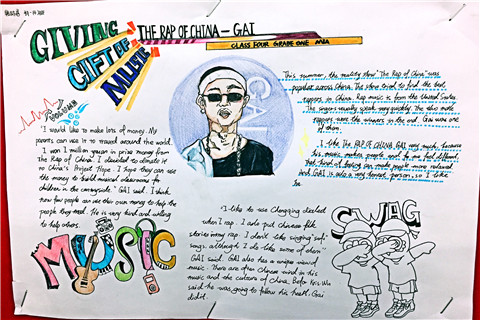 GIVING
GIFT OF
MUSIC
THE RAP OF CHINA — GAI
CLASS FOUR GRADE ONE
GAI
This summer, the reality show "The Rap of China" was
popular across China. The show tried to find the best
rappers in China. Rap music is from the United States.
The singers usually speak very quickly. Two
rappers were the winners in the end. GAI were one
of them.
I like THE RAP OF CHINA GAI very much, because
his music makes people and me feel different,
that kind of feeling can make people
And GAI is also a very honest person, so I like
"I would like to make lots of money. My
parents can use it to travel around the world.
I won 1 million yuan in prize money from
'The Rap of China'. I decided to donate it
to China's Project Hope. I hope they can use
the money to build musical classrooms for
children in the countryside." GAI said. I think
few people can use their own money to help the
people they need. He is very kind and willing
to help others.
MUSIC
"I like to use Chongqing dialect
when I rap. I also put Chinese folk
stories into my rap. I don't like singing
songs, although I do like some of them"
GAI said. GAI also has a unique kind of
music. There are often Chinese in his
music and the culture of China. Before Kris Wu
said he was going to follow his heart. Gai
did it.
SWAG